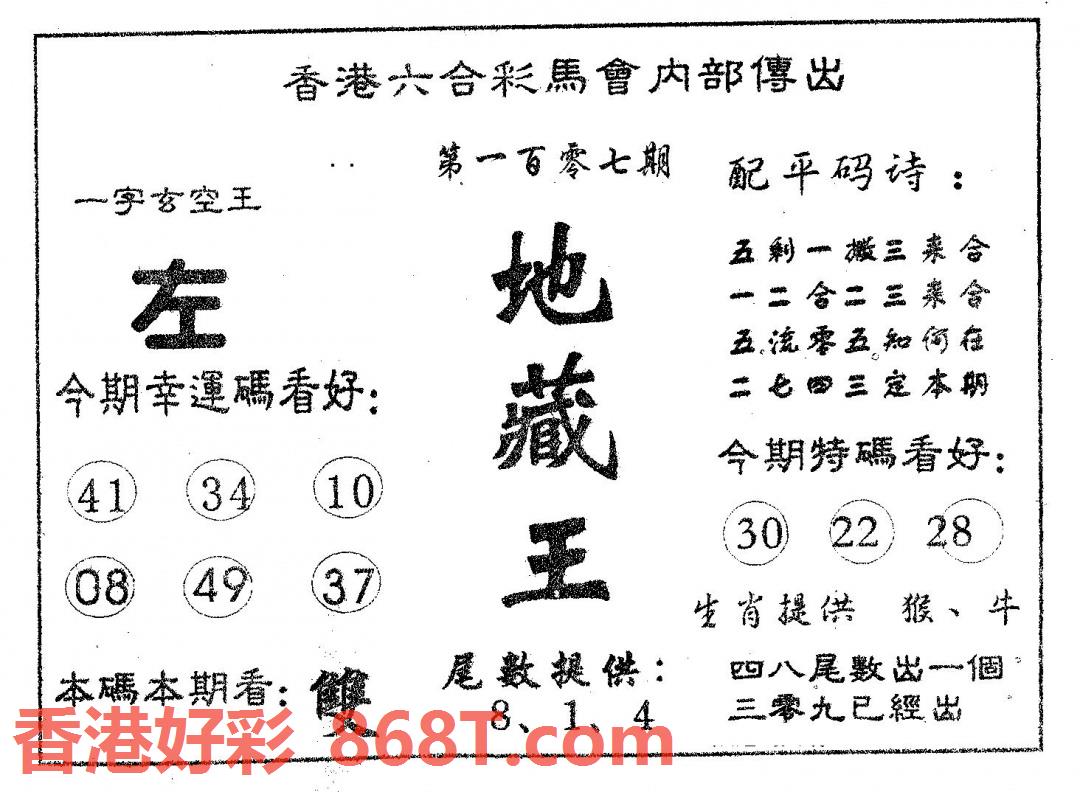 香港六合彩馬會内部傳出
第一百零七期
一字玄空王
左
今期幸運碼看好:
41 34 10
08 49 37
本碼本期看: 雙
地
藏
王
尾數提供:
8、1、4
配平码诗:
五剩一搬三来合
一二合二三来合
五流零五知何在
二七四三定本期
今期特碼看好:
30 22 28
生肖提供 猴、牛
四八尾數出一個
三零九已經出
香港好彩 868T.com